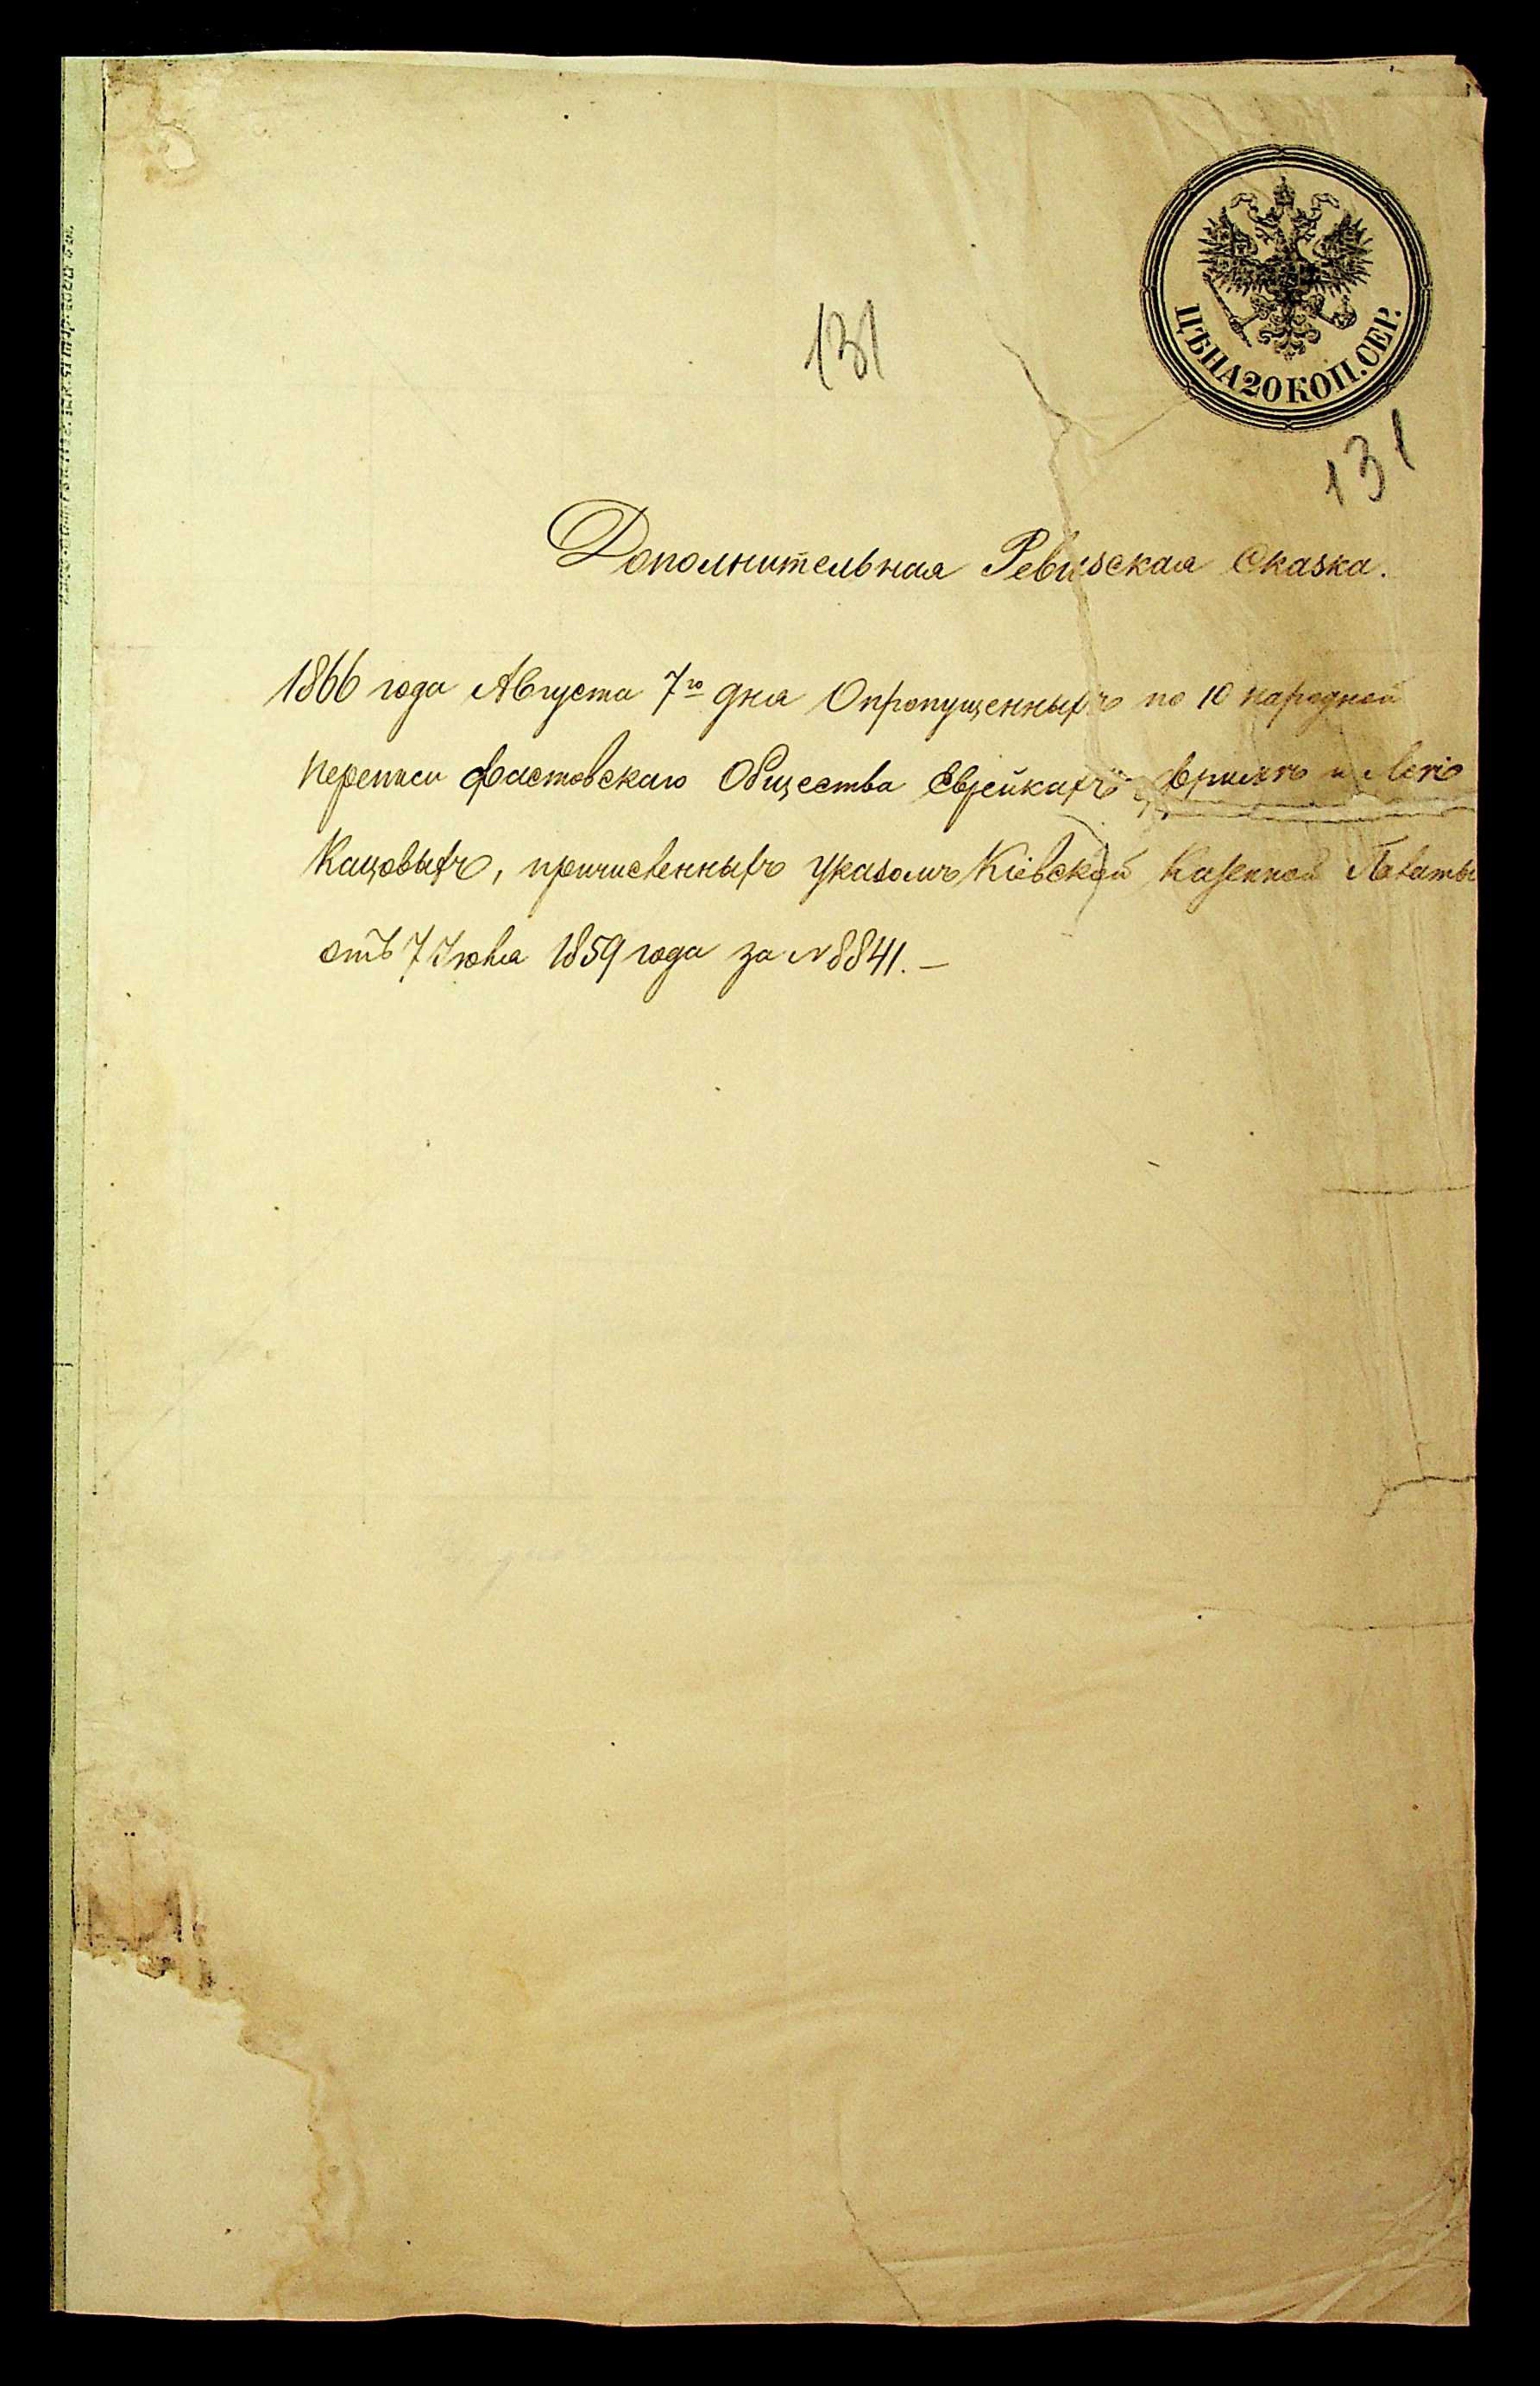 ЦѢНА 20 КОП. СЕР.
131
131
Дополнительная Ревизская Сказка.
1866 года Августа 7го дня О пропущенныхъ по 10 народной
переписи Фастовскаго Общества Еврейкахъ и
Кацовыхъ, причисленныхъ указомъ Кіевской Казенной Палаты
отъ 7 Июля 1859 года за № 8841. —